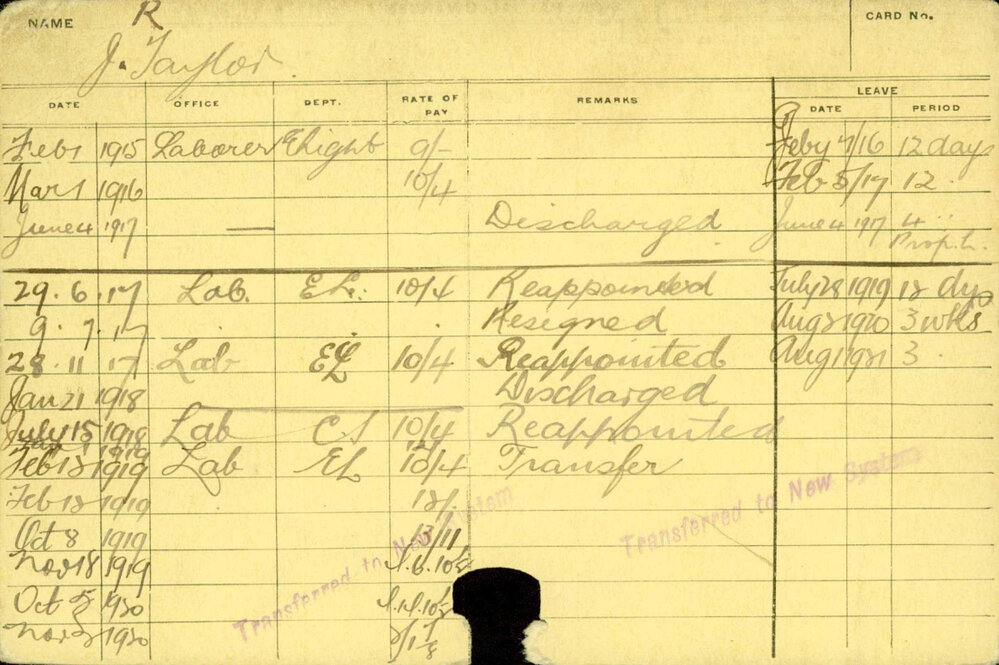 R
NAME CARD No.
J. Taylor.
LEAVE
DATE OFFICE DEPT. RATE OF PAY REMARKS DATE PERIOD
Feb 1 1915 Laborer Elight 9/- Feby 7/16 12 days
Mar 1 1916 10/4 Feb 5/17 12
June 4 1917 — Discharged June 4 1917 4
29. 6. 17 Lab. EL. 10/4 Reappointed July 28 1919 12 dys
9. 7. 17 Resigned Aug 1920 3 wks
28. 11 17 Lab EL 10/4 Reappointed Aug 1921 3
Jan 21 1918 Discharged
July 15 1918 Lab 10/4 Reappointed
Feb 1919 Lab EL Transfer
Feb 1919
Oct 8 1919 13/11
Nov 18 1919
Oct 1920
Nov 1920
Transferred to New System
Transferred to New System